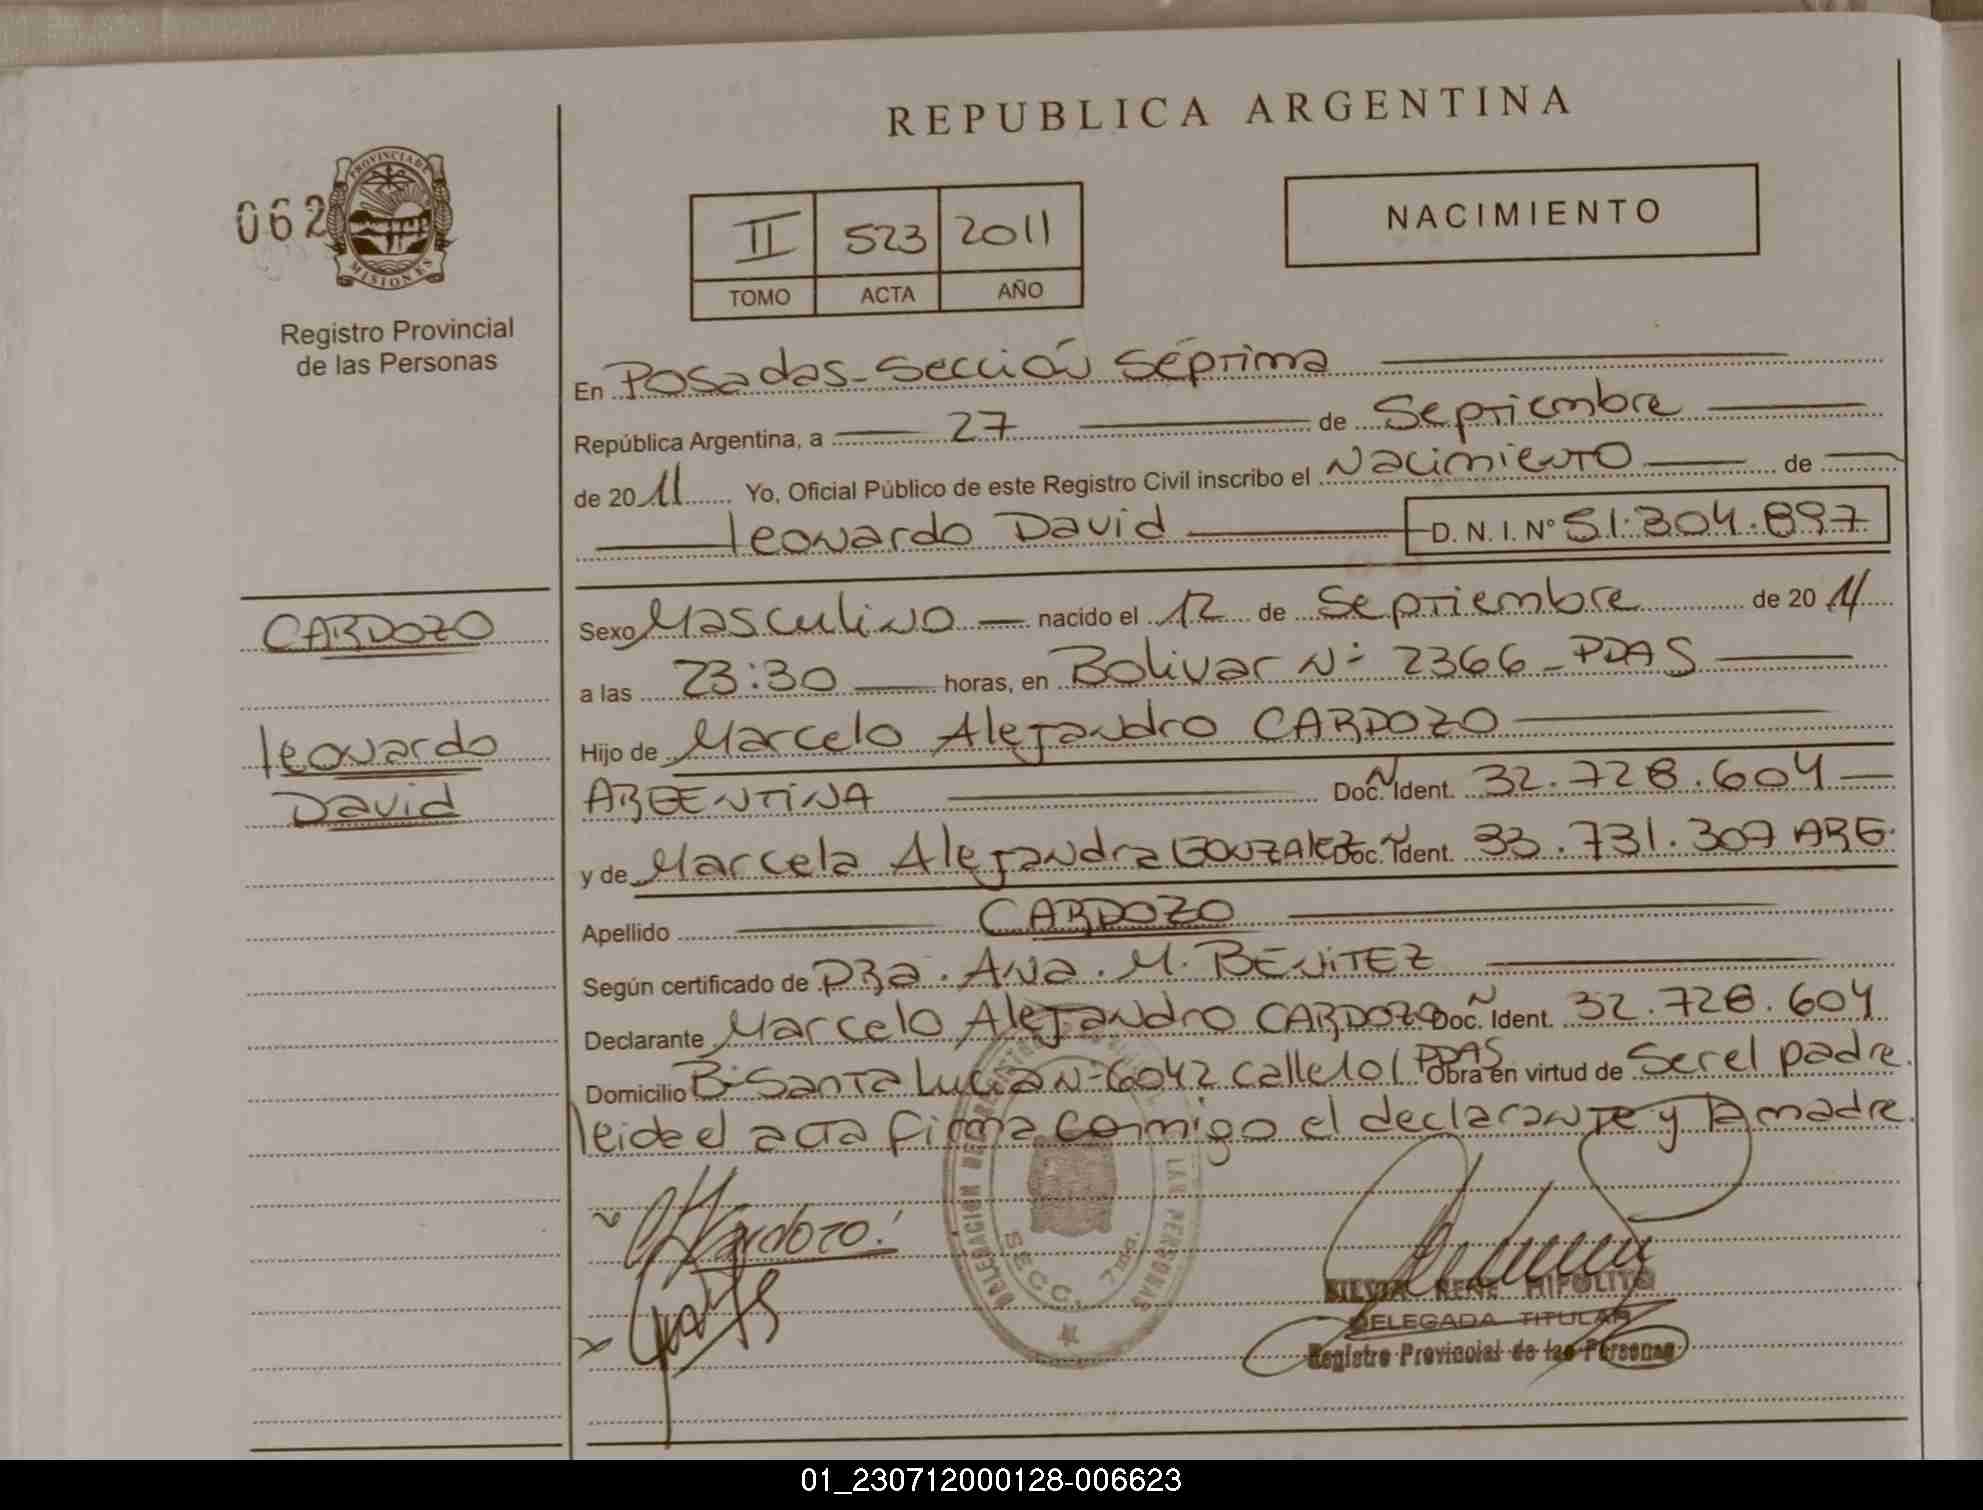 REPUBLICA ARGENTINA
062
PROVINCIA DE
MISIONES
Registro Provincial
de las Personas
II 523 2011
TOMO ACTA AÑO
NACIMIENTO
En Posadas-Sección Séptima
República Argentina, a 27 de Septiembre
de 2011 Yo, Oficial Público de este Registro Civil inscribo el Nacimiento de
Leonardo David D. N. I. Nº 51.304.897
CARDOZO
Leonardo
David
Sexo Masculino nacido el 12 de Septiembre de 2011
a las 23:30 horas, en Bolivar Nº 2366 - PDAS
Hijo de Marcelo Alejandro CARDOZO
ARGENTINA Doc. Ident. 32.728.604
y de Marcela Alejandra GONZALEZ Doc. Ident. 33.731.307 ARG.
Apellido CARDOZO
Según certificado de DRa. Ana. M. BENITEZ
Declarante Marcelo Alejandro CARDOZO Doc. Ident. 32.728.604
Domicilio Bº Santa Lucia Nº 6042 calle 101 PDAS Obra en virtud de Ser el padre.
leida el acta firma conmigo el declarante y la madre.
Cardozo
DELEGACION REGISTRO LAS PERSONAS
SECC. 7ma.
SILVIA RENE HIPOLITO
DELEGADA TITULAR
Registro Provincial de las Personas
01_230712000128-006623